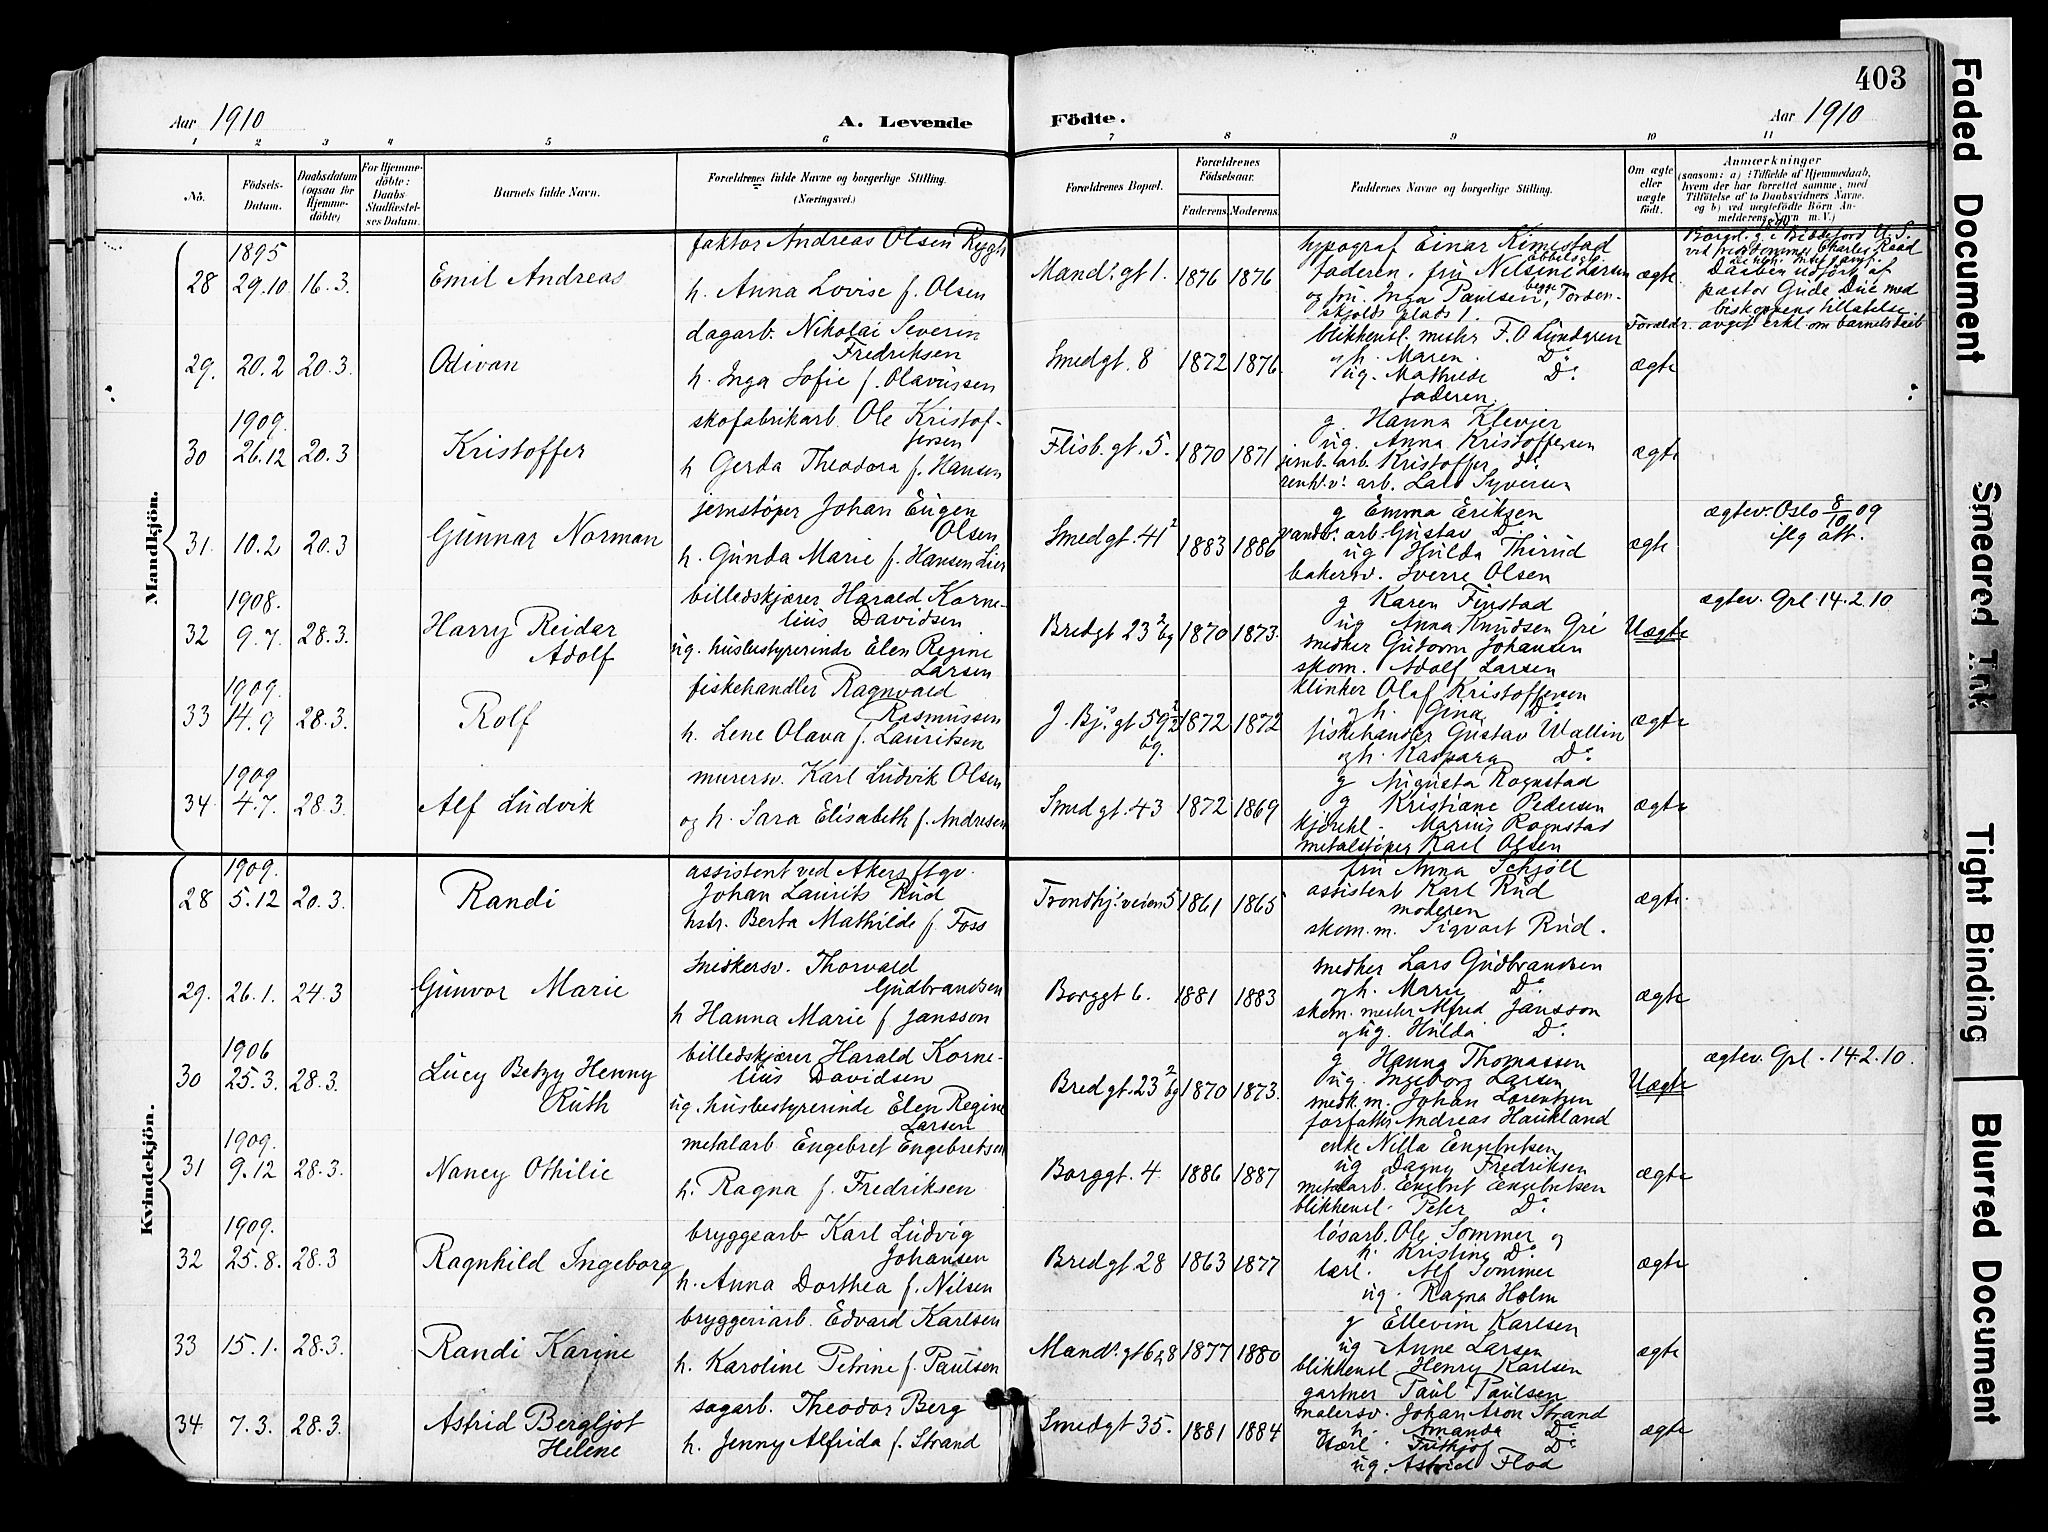 403
Aar 1910
A. Levende
Födte.
Aar 1910
1 2 3 4 5 6 7 8 9 10 11
No.
Födsels-
Datum.
Daabsdatum
(ogsaa for
Hjemme-
döbte)
For Hjemme-
döbte:
Daabs
Stadfæstel-
ses Datum.
Barnets fulde Navn.
Forældrenes fulde Navne og borgerlige Stilling.
(Næringsvei.)
Forældrenes Bopæl.
Forældrenes
Födselsaar.
Faderens. Moderens.
Faddernes Navne og borgerlige Stilling.
Om ægte
eller
uægte
födt.
Anmærkninger
(saasom: a) i Tilfælde af Hjemmedaab,
hvem der har forrettet samme, med
Tilföielse af to Daabsvidners Navne.
og b) ved uægtefödte Börn An-
melderens Navn m. V.)
Mandkjön.
28
1895
29.10
16.3.
Emil Andreas
faktor Andreas Olsen Rygh
h. Anna Lovise f. Olsen
Mands.gt 1.
1876
1876
typograf Einar Kimestad
faderen. fru Nilsine Larsen
og fru. Inga Paulsen, begge Torden-
skjolds plads 1.
ægte
Borgvl. i Biddeford U.S.
Daaben udført af
pastor Gude Due med
biskoppens tilladelse.
Forældr. avgit erkl om barnets daab
29.
20.2
20.3.
Odivan
dagarb. Nikolai Severin
Fredriksen
h. Inga Sofie f. Olavussen
Smedgt. 8
1872
1876
blikkensl. mester F. O Lundgren
og h. Maren. Do
ug. Mathilde Do
faderen.
ægte
30
1909.
26.12
20.3
Kristoffer
skofabrikarb. Ole Kristof-
fersen
h Gerda Theodora f. Hansen
Flisb.gt. 5.
1870
1871
g. Hanna Klevjer
ug. Anna Kristoffersen
jernb. arb. Kristoffer do
renh.v. arb. Lars Syversen
ægte
31.
10.2
20.3
Gunnar Norman
jernstøper Johan Eugen
Olsen
h. Gunda Marie f. Hansen Lier
Smedgt. 41 2
1883
1886
g Emma Eriksen
vandv. arb. Gustav Do
ug Hulda Thirud
bakersv. Sverre Olsen
ægte
ægtev. Oslo 8/10 09
iflg att.
32
1908.
9.7.
28.3.
Harry Reidar
Adolf
billedskjærer Harald Korne-
lius Davidsen
ug. husbestyrerinde Elen Regine
Larsen
Bredgt 23 2 bg
1870
1873.
g Karen Finstad
ug Anna Knudsen Gri
snedker Gutorm Johansen
skom. Adolf Larsen
Uægte
ægtev. Grl. 14.2.10
33
1909.
14.9
28.3.
Rolf
fiskehandler Ragnvald
Rasmussen
h. Lene Olava f. Lauritsen
J. Bj.s gt 59 2
bg.
1872
1872
klinker Olaf Kristoffersen
og h. Gina Do
fiskehandler Gustav Wallin
og h. Kaspara Do
ægte
34.
1909
4.7.
28.3.
Alf Ludvik
murersv. Karl Ludvik Olsen
og h. Sara Elisabeth f. Andresen
Smedgt. 43
1872
1869
g Augusta Rognstad
g Kristiane Pedersen
kjørekl. Marius Rognstad
metalstøper Karl Olsen
ægte
Kvindekjön.
28
1909.
5.12
20.3.
Randi
assistent ved Akers ftgv.
Johan Laurits Rud
hstr. Berta Mathilde f. Foss
Trondhj.s veien 5
1861
1865
fru Anna Schjöll
assistent Karl Rud
moderen
skom. m. Sigvart Rud.
ægte.
29.
26.1.
24.3
Gunvor Marie
snedkersv. Thorvald
Gudbrandsen
h Hanna Marie f Jansson
Borggt 6.
1881
1883
snedker Lars Gudbrandsen
og h. Marie Do
skom. mester Alfred Jansson
og ug. Hulda Do
ægte
30
1906
25.3.
28.3.
Lucy Betzy Henny
Ruth
billedskjærer Harald Korne-
lius Davidsen
ug. husbestyrerinde Elen Regine
Larsen
Bredgt. 23 2 bg
1870
1873.
g Hanna Thomassen
ug. Ingeborg Larsen
snedk. m. Johan Lorentzen
forfatter Andreas Haukland
Uægte
ægtev. Grl. 14.2.10.
31
1909.
9.12
28.3.
Nancy Othilie
metalarb Engebret Engebretsen
h. Ragna f. Fredriksen
Borggt. 4
1886
1887
enke Nilla Engebretsen
ug Dagny Fredriksen
metalarb. Engebret Engebretsen
blikkensl. Peter Do
ægte
32
1909.
25.8.
28.3
Ragnhild Ingeborg
bryggearb Karl Ludvig
Johansen
h. Anna Dorthea f. Nilsen
Bredgt. 28
1863
1877
løsarb. Ole Sommer og
h. Kristine Do
lærl. Alf Sommer
ug. Ragna Holm
ægte
33
15.1.
28.3.
Randi Karine
bryggeriarb. Edvard Karlsen
h. Karoline Petrine f. Paulsen
Mands.gt 6 a 8
1877
1880
g Ellevine Karlsen
ug Anne Larsen
blikkensl Henry Karlsen
gartner Paul Paulsen
ægte
34
7.3.
28.3.
Astrid Bergljot
Helene
sagarb. Theodor Berg
h. Jenny Alfrida f. Strand
Smedgt 35.
1881
1884
malersv. Johan Aron Strand
og h. Amanda Do
lærl. Frithjof Do
ug. Astrid Flod
ægte
Faded Document
Smeared Ink
Tight Binding
Blurred Document